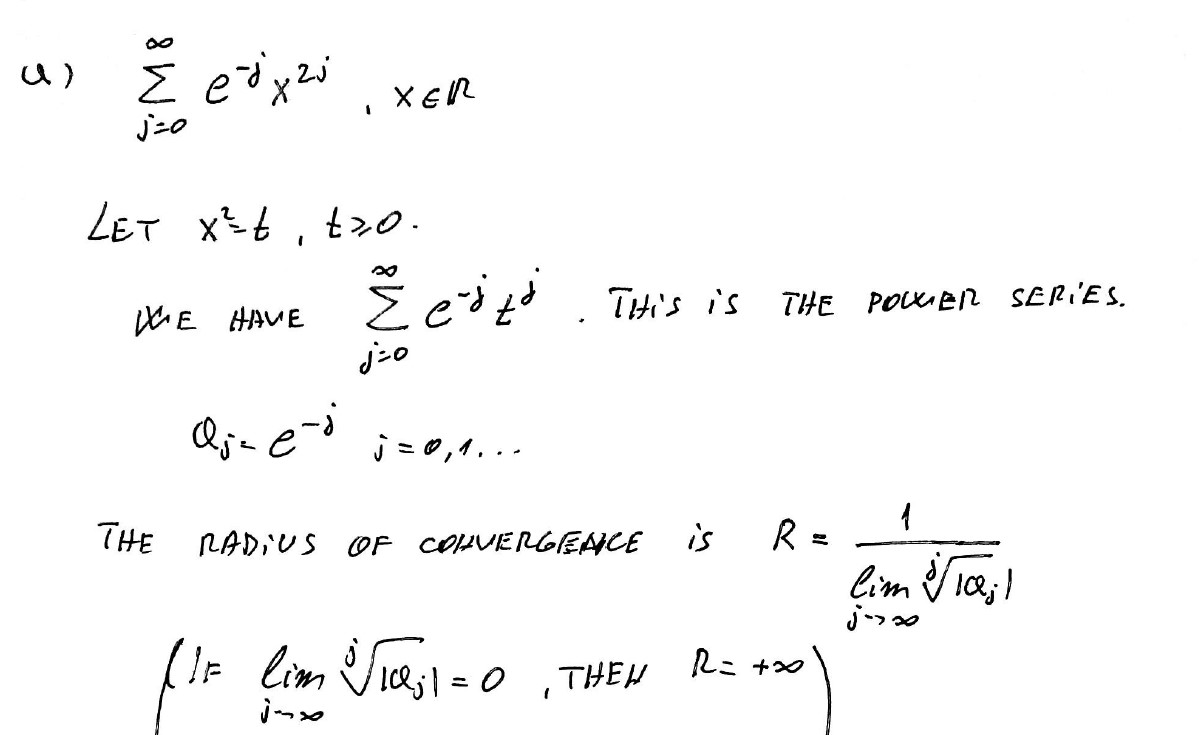 a) $\sum_{j=0}^{\infty} e^{-j} x^{2j}$ , $x \in \mathbb{R}$
LET $x^2 = t$ , $t \geq 0$.
WE HAVE $\sum_{j=0}^{\infty} e^{-j} t^j$ . THIS IS THE POWER SERIES.
$a_j = e^{-j}$ $j = 0, 1 \ldots$
THE RADIUS OF CONVERGENCE IS $R = \frac{1}{\lim_{j \to \infty} \sqrt[j]{|a_j|}}$
( IF $\lim_{j \to \infty} \sqrt[j]{|a_j|} = 0$ , THEN $R = +\infty$ )